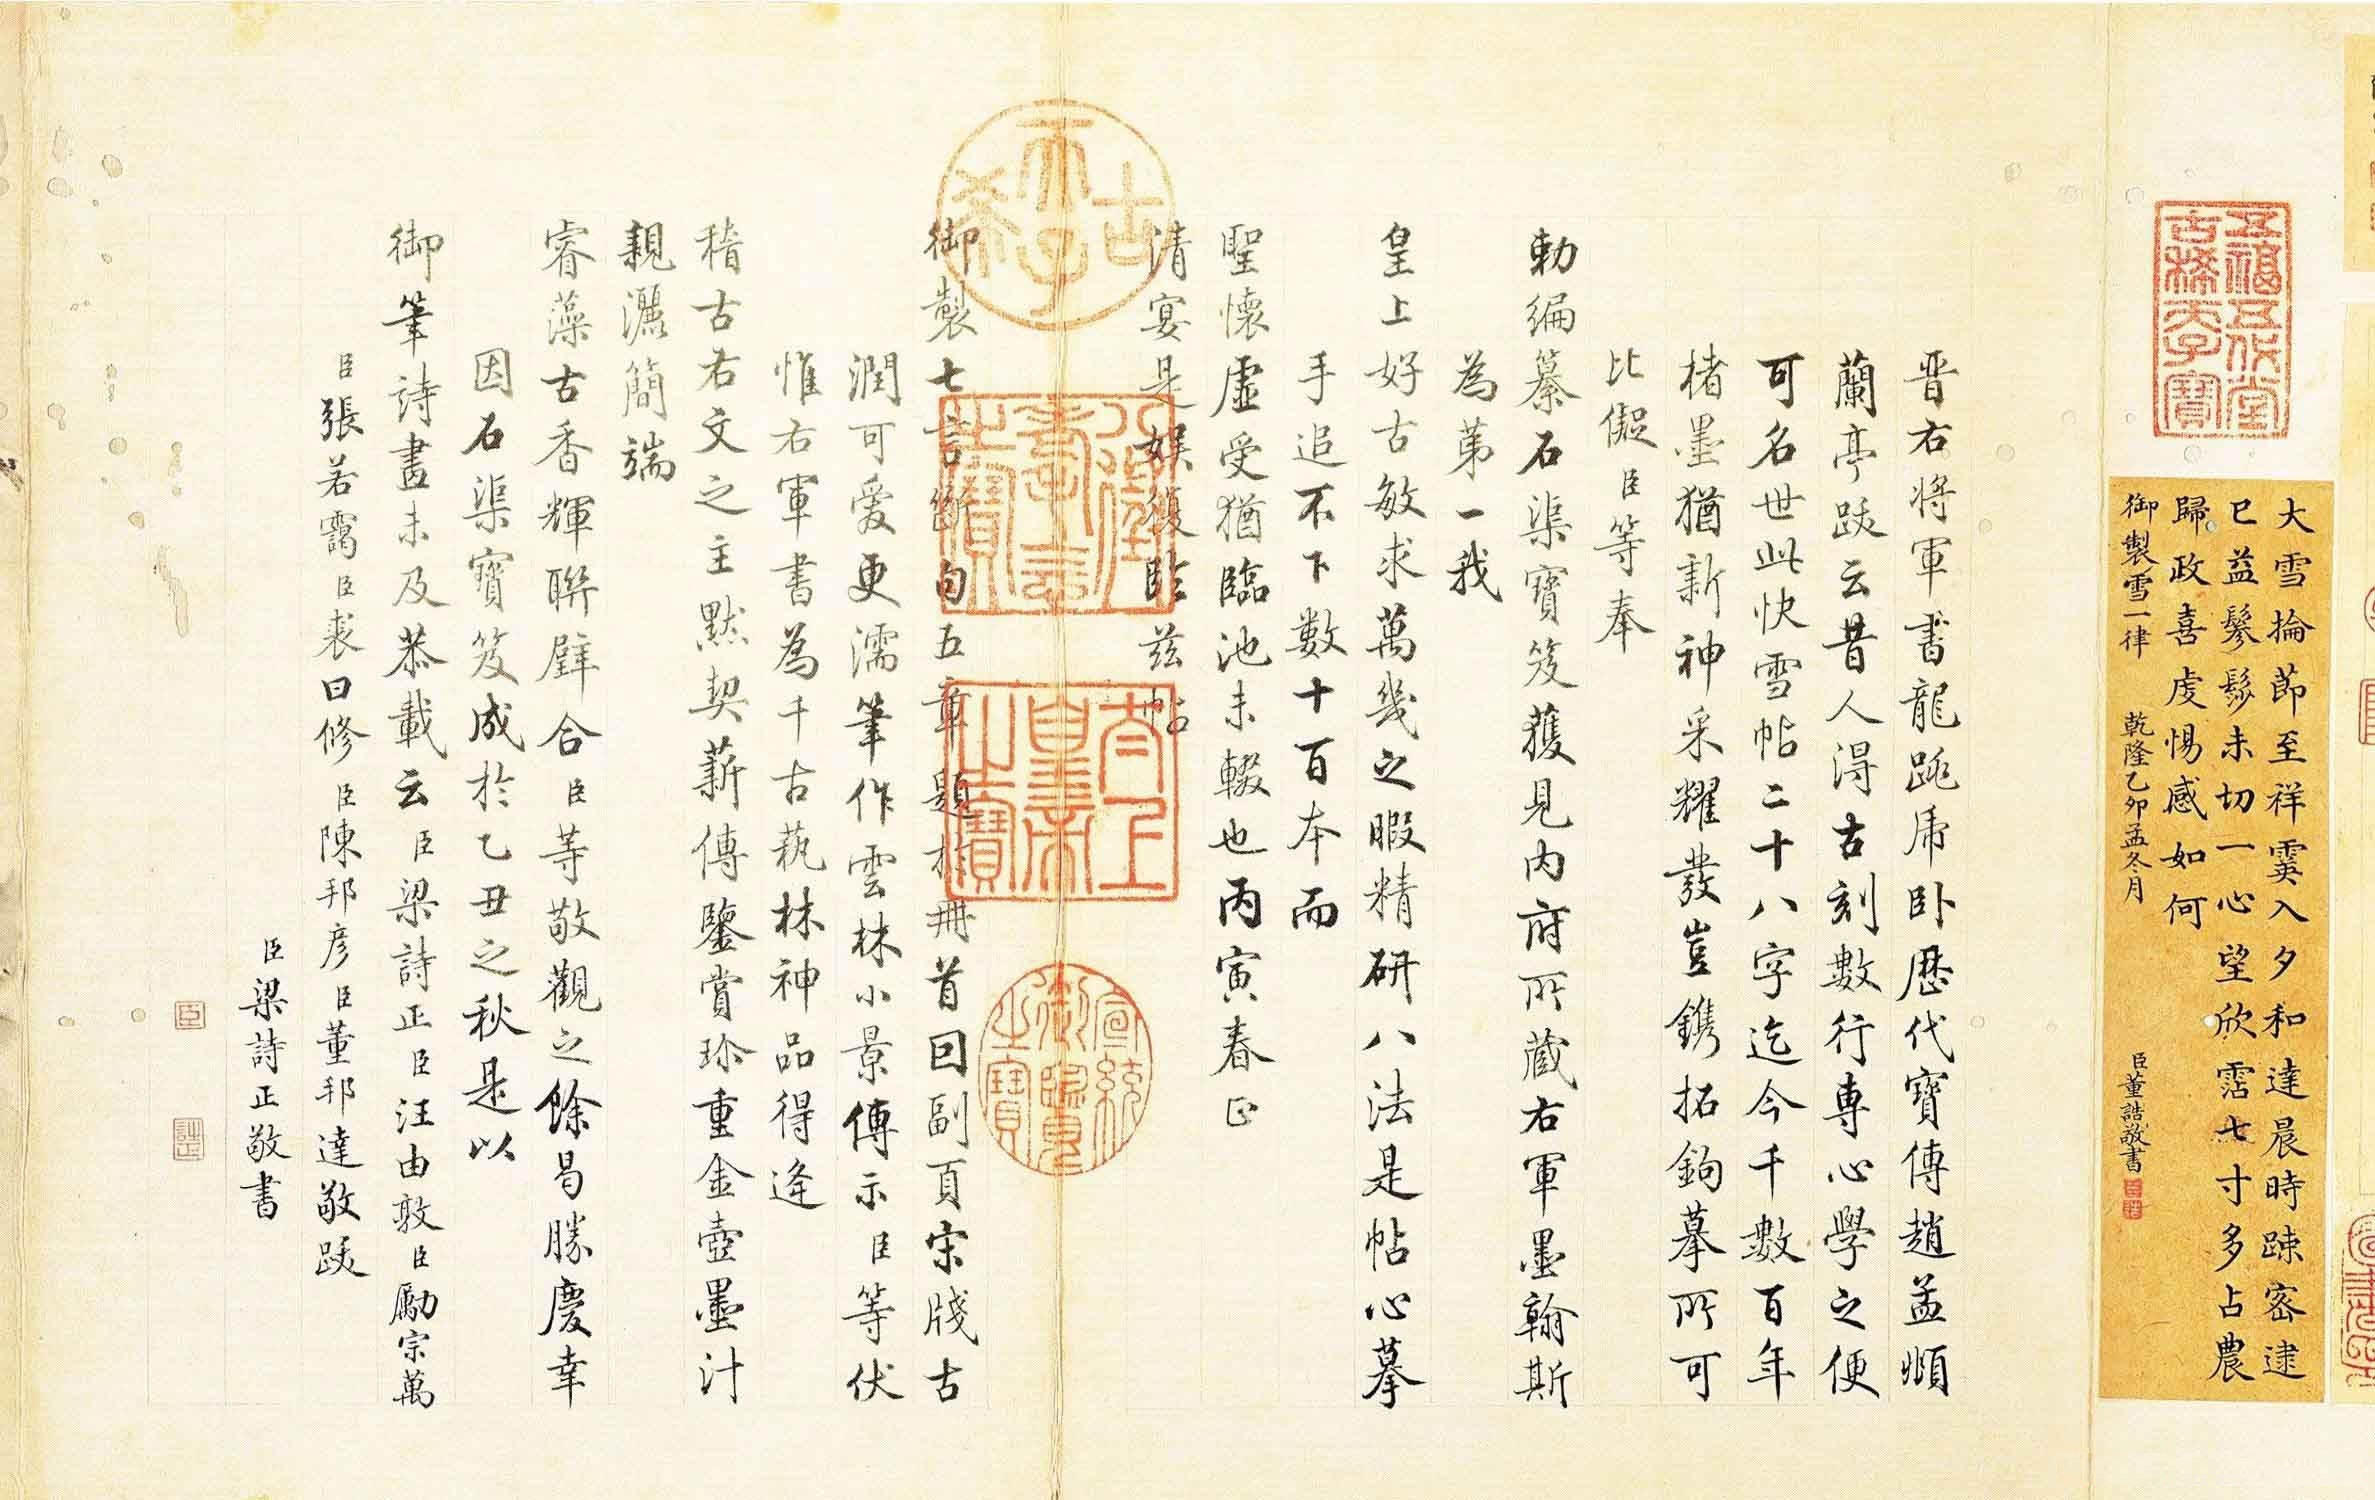 五福五代堂
古稀天子寶
大雪掄節至祥霙入夕和達晨時踈密逮
已益鬖髿未切一心望欣霑七寸多占農
歸政喜虔惕感如何
御製雪一律 乾隆乙卯孟冬月 臣董誥敬書
晋右將軍書龍跳虎卧歷代寶傳趙孟頫
蘭亭跋云昔人得古刻數行專心學之便
可名世此快雪帖二十八字迄今千數百年
楮墨猶新神采耀發豈鐫拓鉤摹所可
比儗臣等奉
勅編纂石渠寶笈獲見内府所藏右軍墨翰斯
為第一我
皇上好古敏求萬幾之暇精研八法是帖心摹
手追不下數十百本而
聖懷虛受猶臨池未輟也丙寅春正
清宴是娱復臨茲帖
古希天子
八徵耄念之寶
太上皇帝之寶
宣統御覽之寶
御製七言斷句五章題於冊首回副頁宋牋古
潤可愛更濡筆作雲林小景傳示臣等伏
惟右軍書為千古秇林神品得逄
稽古右文之主黙契薪傳鑒賞珎重金壺墨汁
親灑簡端
睿藻古香輝聯璧合臣等敬觀之餘曷勝慶幸
因石渠寳笈成扵乙丑之秋是以
御筆詩畫未及恭載云臣梁詩正臣汪由敦臣勵宗萬
臣張若靄臣裘曰修臣陳邦彦臣董邦達敬跋
臣梁詩正敬書
臣
詩正